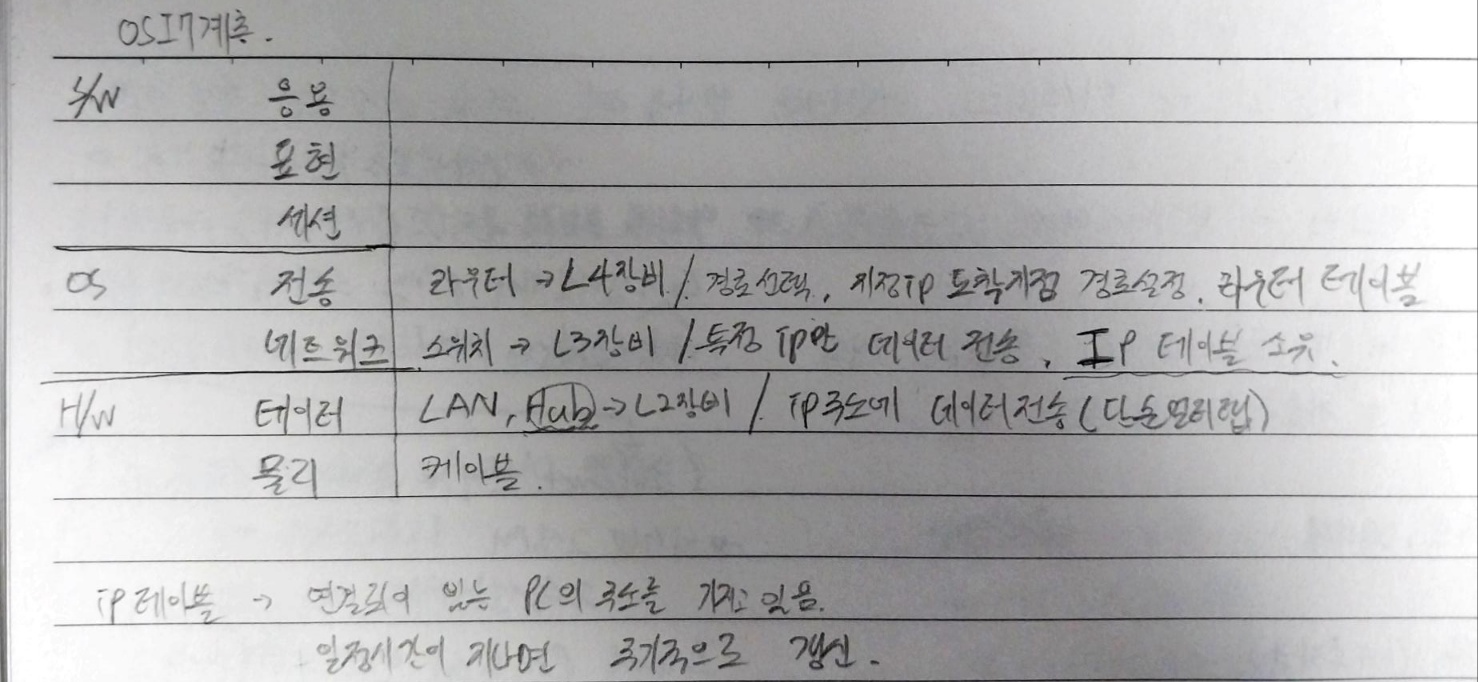 OSI 7계층.
S/W 응용
표현
세션
OS 전송 라우터 → L4장비 / 경로선택, 지정ip 도착지점 경로설정, 라우터 테이블
네트워크 스위치 → L3장비 / 특정 ip만 데이터 전송, IP 테이블 소유.
H/W 데이터 LAN, Hub → L2장비 / ip주소내 데이터전송 (단순멀티탭)
물리 케이블.
ip테이블 → 연결되어 있는 PC의 주소를 가지고 있음.
일정시간이 지나면 주기적으로 갱신.